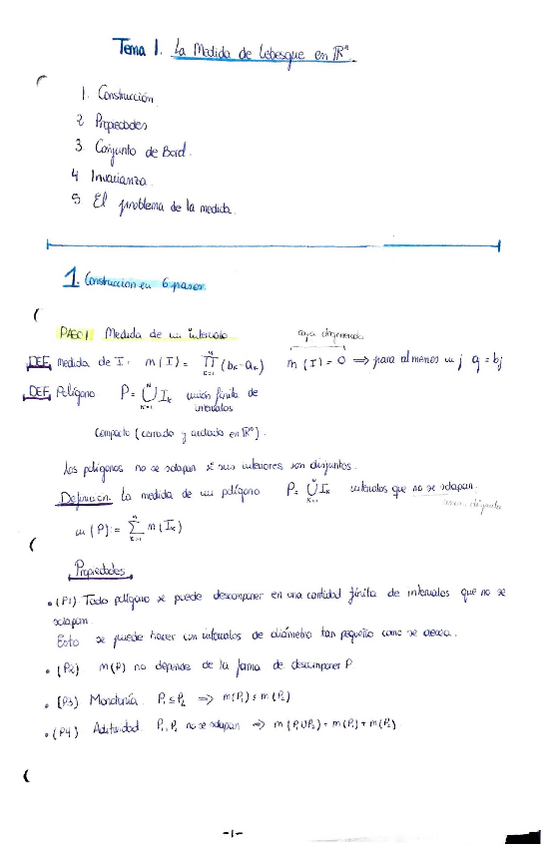 Tema 1. La Medida de Lebesgue en ℝⁿ.
1. Construcción
2 Propiedades
3 Conjunto de Borel.
4 Invarianza.
5 El problema de la medida.
1. Construccion en 6 pasos
PASO 1 Medida de un intervalo
caja degenerada
DEF medida de I: m(I) = ∏ₖ₌₁ⁿ (bₖ - aₖ) m(I) = 0 ⟹ para al menos un j aⱼ = bⱼ
DEF Polígono P = ⋃ₖ₌₁ᴺ Iₖ unión finita de
intervalos
Compacto (cerrado y acotado en ℝⁿ).
Los polígonos no se solapan si sus interiores son disjuntos.
Definicion La medida de un polígono P = ⋃ₖ₌₁ᴺ Iₖ intervalos que no se solapan.
m(P) := ∑ₖ₌₁ᴺ m(Iₖ)
Propiedades
• (P1) Todo polígono se puede descomponer en una cantidad finita de intervalos que no se
solapan.
Esto se puede hacer con intervalos de diámetro tan pequeño como se desea.
• (P2) m(P) no depende de la forma de descomponer P
• (P3) Monotonía P₁ ⊆ P₂ ⟹ m(P₁) ≤ m(P₂)
• (P4) Aditividad P₁, P₂ no se solapan ⟹ m(P₁ ∪ P₂) = m(P₁) + m(P₂)
-1-